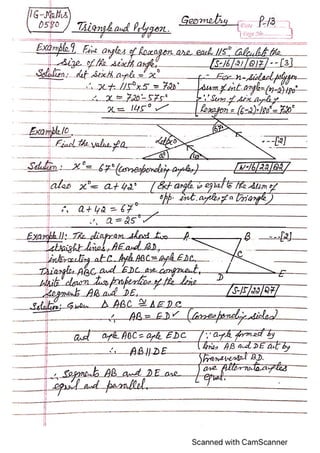 IG-Maths
0580
Triangle and Polygon.
Geometry
P.13
Example 9. Five angles of hexagon are each 115° Calculate the
size of the sixth angle. [S-16/21/B17] --[3]
Solution: Let sixth angle = x°
∴ x + 115°x5 = 720°
∴ x = 720°-575°
x = 145° ✓
∵ For n-sided polygon
sum of int. angle = (n-2)180°
∴ Sum of six angles of
hexagon = (6-2)×180° = 720°
Example 10.
Find the value of a.
Let x°
67°
a°
42°
---[2]
Solution: x° = 67° (corresponding angles) [W-16/22/B12]
also x° = a + 42° (Ext angle is equal to the sum of
opp. int. angles of a triangle)
∴ a + 42 = 67°
∴ a = 25° ✓
Example 11: The diagram shows two
straight lines, AE and BD,
intersecting at C. Angle ABC = angle EDC.
Triangles ABC and EDC are congruent,
Write down two properties of the line
segments AB and DE.
A
B
--[2]
C
D
E
[S-15/22/Q7]
Solution: Given △ ABC ≅ △ EDC
∴ AB = ED ✓ (Corresponding sides)
and angle ABC = angle EDC
∴ AB || DE
(∵ angle formed by
lines AB and DE cut by
transversal BD.
are Alternate angles
equal.
∴ Segments AB and DE are
equal and parallel.
Scanned with CamScanner